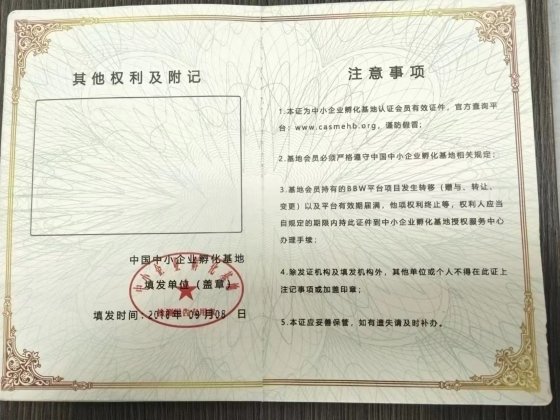 其他权利及附记
中国中小企业孵化基地
填发单位（盖章）
填发时间：2018年09月08日
注意事项
1.本证为中小企业孵化基地认证会员有效证件，官方查询平
台：www.casmehb.org，谨防假冒；
2.基地会员必须严格遵守中国中小企业孵化基地相关规定；
3.基地会员持有的BBW平台项目发生转移（赠与、转让、
变更）以及平台有效期届满，他项权利终止等，权利人应当
自规定的期限内持此证件到中小企业孵化基地授权服务中心
办理手续；
4.除发证机构及填发机构外，其他单位或个人不得在此证上
注记事项或加盖印章；
5.本证应妥善保管，如有遗失请及时补办。